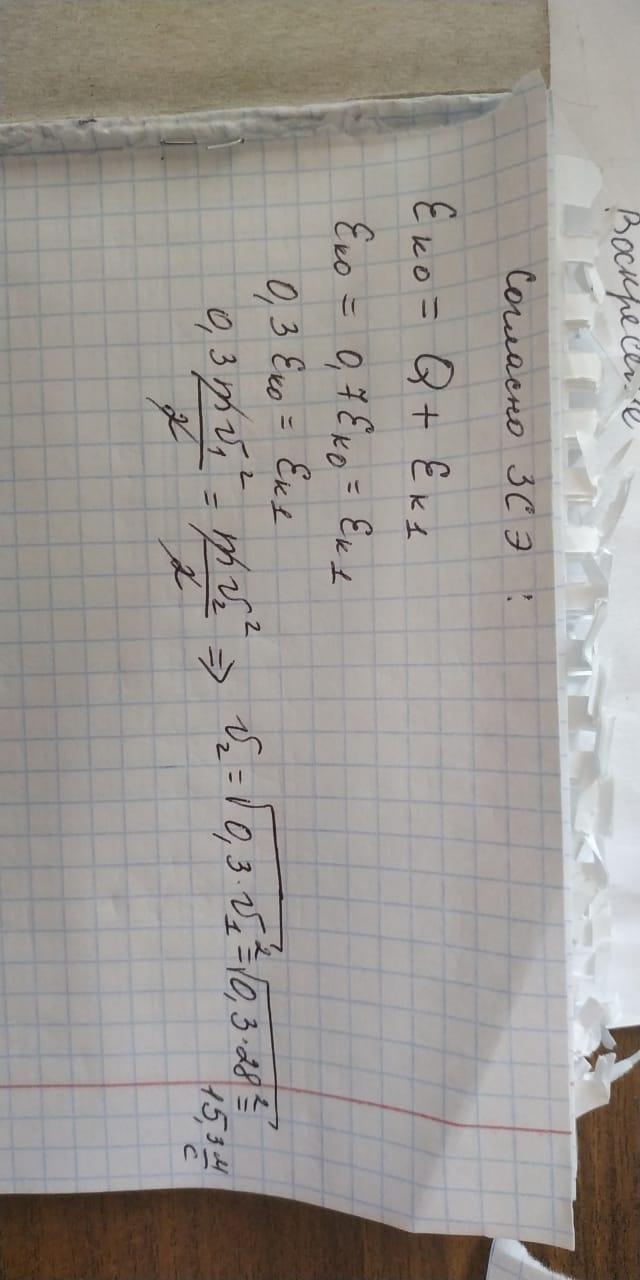 Воскресенье
Согласно ЗСЭ:
Eк0 = Q + Eк1
Eк0 = 0,7Eк0 = Eк1
0,3 Eк0 = Eк1
0,3 mv₁²/2 = mv₂²/2 ⇒ v₂ = √(0,3·v₁²) = √(0,3·28²) = 15,3 м/с